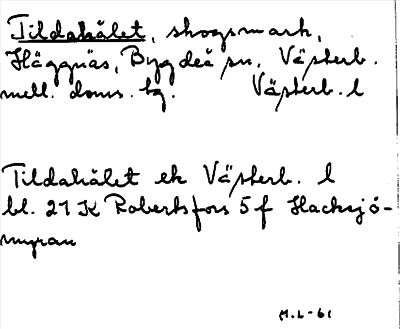 Tildahålet, skogsmark,
Häggnäs, Bygdeå sn. Västerb.
mell. doms. hg. Västerb. l
Tildahålet ek Västerb. l
bl. 21 K Robertsfors 5 f Hacksjö-
myran
M.L-61